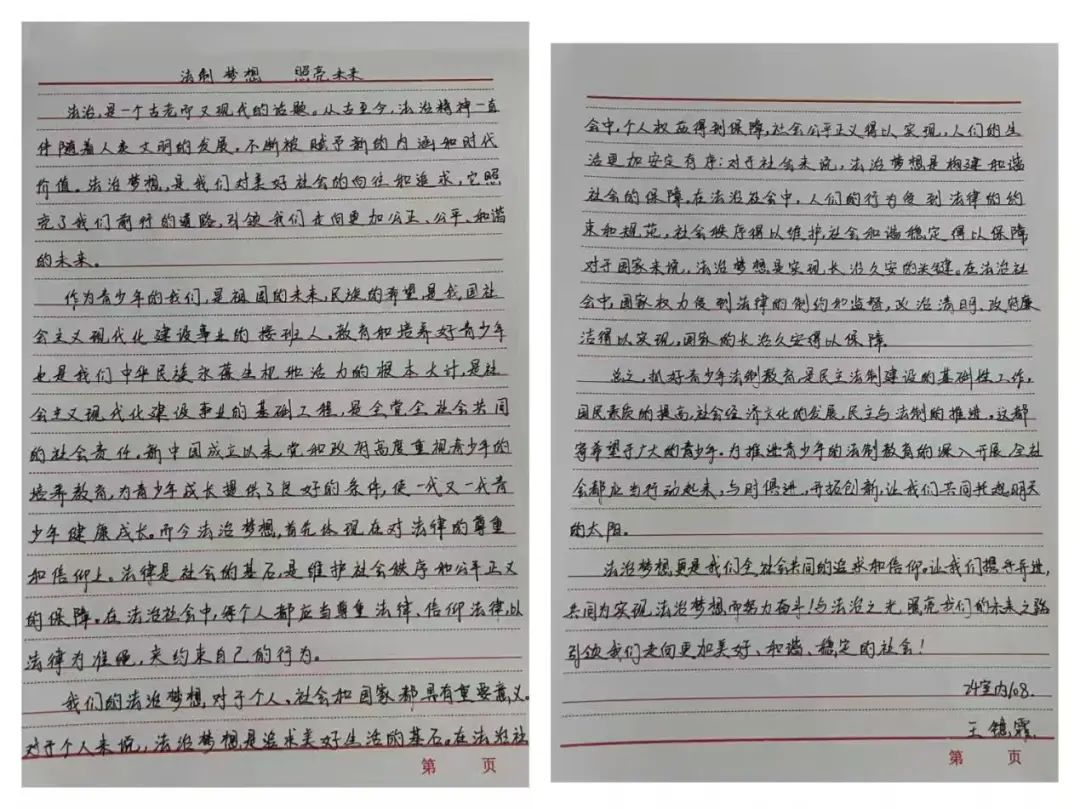 法制梦想 照亮未来
法治,是一个古老而又现代的话题。从古至今,法治精神一直
伴随着人类文明的发展,不断被赋予新的内涵和时代
价值。法治梦想,是我们对美好社会的向往和追求,它照
亮了我们前行的道路,引领我们走向更加公正、公平、和谐
的未来。
作为青少年的我们,是祖国的未来,民族的希望,是我国社
会主义现代化建设事业的接班人。教育和培养好青少年
也是我们中华民族永葆生机和活力的根本大计,是社
会主义现代化建设事业的基础工程,是全党全社会共同
的社会责任。新中国成立以来,党和政府高度重视青少年的
培养教育,为青少年成长提供了良好的条件,使一代又一代青
少年健康成长。而今法治梦想,首先体现在对法律的尊重
和信仰上。法律是社会的基石,是维护社会秩序和公平正义
的保障。在法治社会中,每个人都应当尊重法律、信仰法律,以
法律为准绳,来约束自己的行为。
我们的法治梦想,对于个人、社会和国家都具有重要意义。
对于个人来说,法治梦想是追求美好生活的基石。在法治社
第 页
会中,个人权益得到保障,社会公平正义得以实现,人们的生
活更加安定有序;对于社会来说,法治梦想是构建和谐
社会的保障。在法治社会中,人们的行为受到法律的约
束和规范,社会秩序得以维护,社会和谐稳定得以保障
对于国家来说,法治梦想是实现长治久安的关键。在法治社
会中,国家权力受到法律的制约和监督,政治清明、政府廉
洁得以实现,国家的长治久安得以保障。
总之,抓好青少年法制教育,是民主法制建设的基础性工作,
国民素质的提高,社会经济文化的发展,民主与法制的推进。这都
寄希望于广大的青少年。为推进青少年的法制教育的深入开展,全社
会都应当行动起来,与时俱进,开拓创新,让我们共同托起明天
的太阳。
法治梦想,更是我们全社会共同的追求和信仰。让我们携手并进,
共同为实现法治梦想而努力奋斗!与法治之光,照亮我们的未来之路
引领我们走向更加美好、和谐、稳定的社会!
24室内108.
王 霞.
第 页